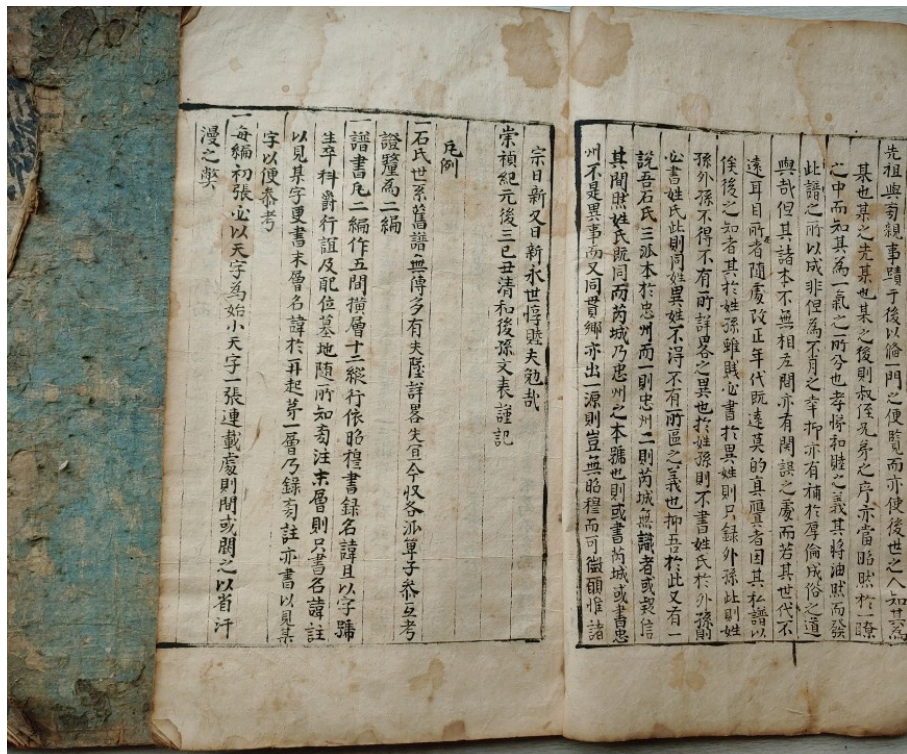 先祖與蒭親事蹟于後以俻一門之便覧而亦使後世之人知其為
某也某之先某也某之後則叔侄兄弟之序亦當昭然於一瞭
之中而知其為一氣之所分也孝悌和睦之義其將油然而發
此譜之所以成非但為不肖之幸抑亦有補於厚倫成俗之道
與哉但其諸本不無相左間亦有闕誤之處而若其世代不
遠耳目所者隨處改正年代既遠莫的真贗者因其私譜以
俟後之知者其於姓孫雖賎必書於異姓則只錄外孫此則姓
孫外孫不得不有所詳畧之異也於姓孫則不書姓氏於外孫則
必書姓氏此則同姓異姓不淂不有所區之義也抑吾於此又有一
說吾石氏三派本於忠州而一則忠州二則芮城無識者或
其間然姓氏既同而芮城乃忠州之本號也則或書芮城或書忠
州不是異事而又同貫鄉亦出一源則豈無昭穆而可徵願惟諸
宗日新又日新永世惇睦夫勉哉
崇禎紀元後三己丑清和後孫文表謹記
凡例
一石氏世系舊譜無傳多有失墜詳畧失宜今収各派單子叅互考
證釐為二編
一譜書凡二編作五間橫層十二縱行依昭穆書錄名諱且以字號
生卒科爵行誼及配位墓地隨所知菊注末層則只書名諱註
以見某字更書末層名諱於再起苐一層乃錄菊註亦書以見某
字以便叅考
一每編初張必以天字為始小天字一張連載處則間或闕之以省汗
漫之弊